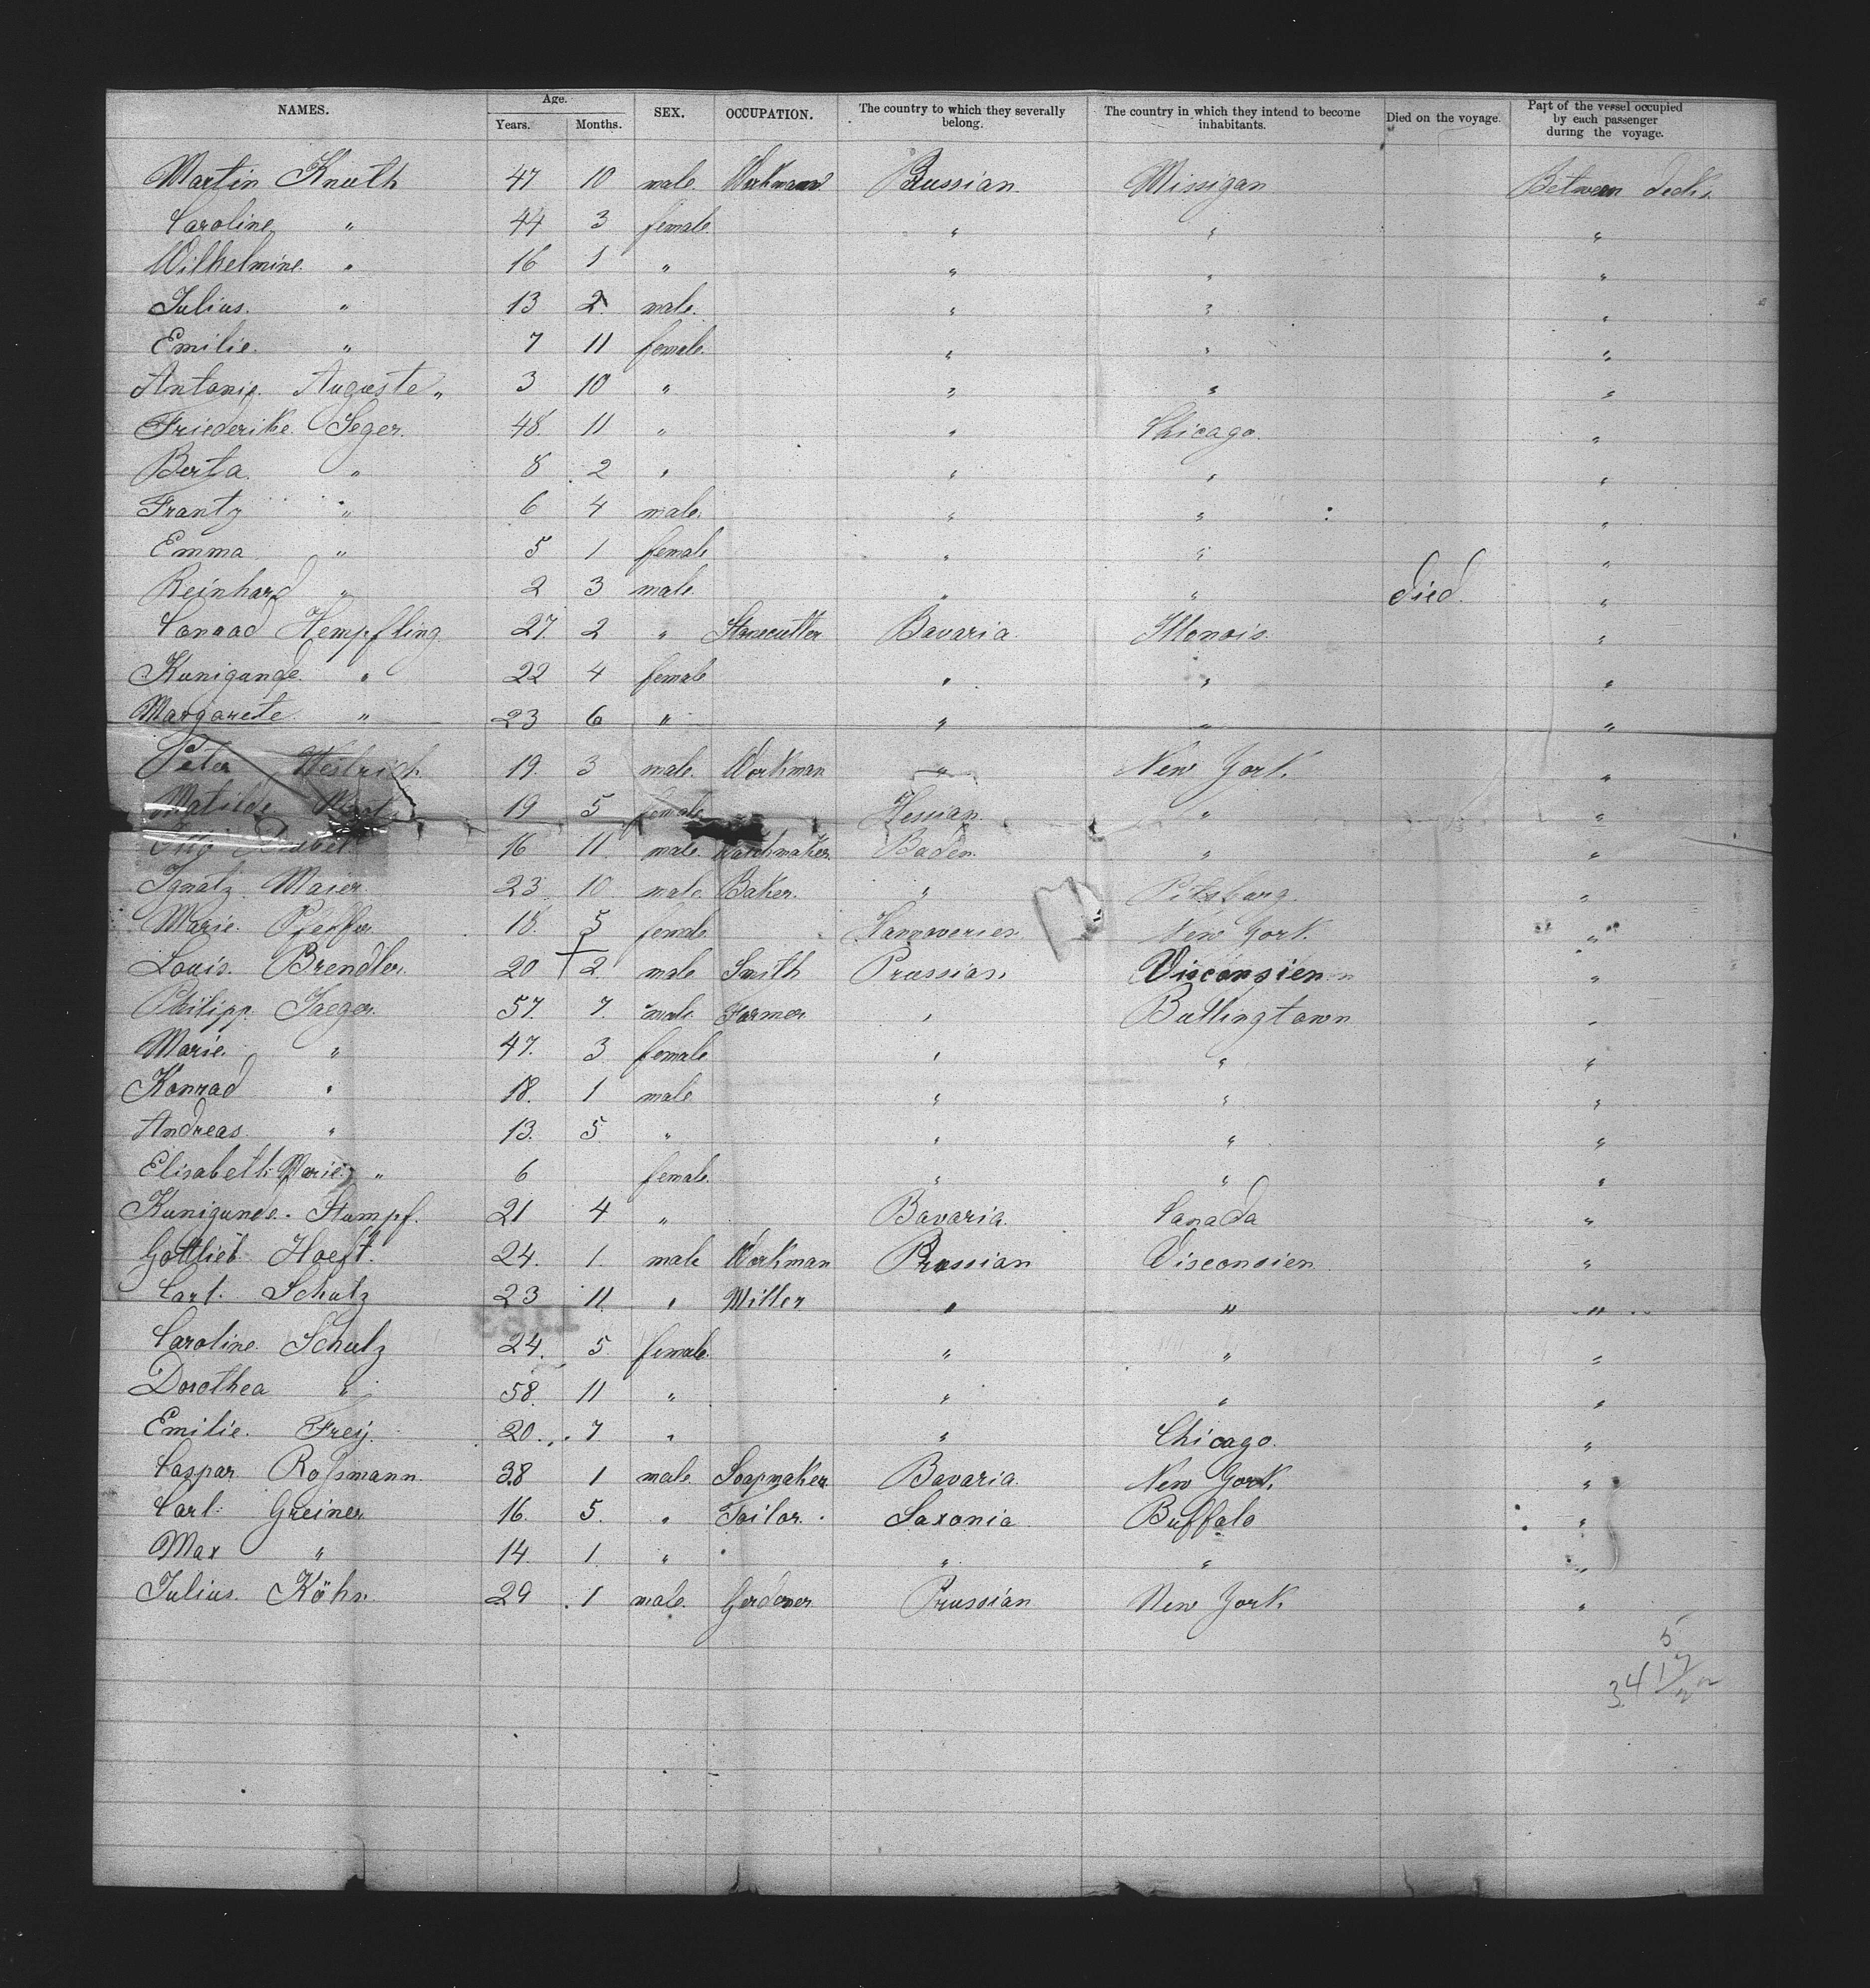 NAMES. Age. Years. Months. SEX. OCCUPATION. The country to which they severally belong. The country in which they intend to become inhabitants. Died on the voyage. Part of the vessel occupied by each passenger during the voyage.
Martin Knuth 47 10 male. Workmann Prussian Missigan Between decks.
Caroline " 44 3 female. " " "
Wilhelmine " 16 1 " " " "
Julius. " 13 2 male. " " "
Emilie. " 7 11 female. " " "
Antonie. Auguste " 3 10 " " " "
Friederike. Seger. 48. 11 " " Chicago. "
Berta. " 8 2 " " " "
Frantz " 6 4 male. " " "
Emma " 5 1 female " " "
Reinhard " 2 3 male " " died. "
Conrad Hempfling 27. 2 " Stonecutter Bavaria. Illonois. "
Kunigunde. " 22 4 female " " "
Margarete. " 23 6 " " " "
Peter Westrich. 19. 3 male. Workman " New York. "
Matilde 19 5 female Hessian. " "
Otto 16 11. male. Watchmaker. Baden. " "
Ignatz Maier 23. 10 male Baker. " Pitsburg. "
Marie. Pfeffer 18. 5 female Hannoverien New York. "
Louis. Brendler. 20 2 male Smith Prussian. Visconsien "
Philipp. Jaeger. 57. 7. male. Farmer " Bullingtown "
Marie. " 47. 3 female " " "
Konrad " 18. 1 male " " "
Andreas. " 13. 5 " " " "
Elisabeth Marie " 6 female. " " "
Kunigunde. Stumpf. 21 4 " Bavaria. Canada "
Gottlieb. Hoeft. 24. 1. male Workman Prussian Visconsien "
Carl. Schulz 23 11. " Miller " " "
Caroline. Schulz 24. 5 female. " " "
Dorothea " 58. 11 " " " "
Emilie. Frey. 20. 7. " " Chicago. "
Caspar Roßmann. 38 1 male Soapmaker. Bavaria. New York. "
Carl. Greiner. 16. 5. " Tailor. Saxonia Buffalo "
Max " 14. 1. " " " "
Julius. Köhn. 29 1 male. Gardener Prussian New York. "
5
34